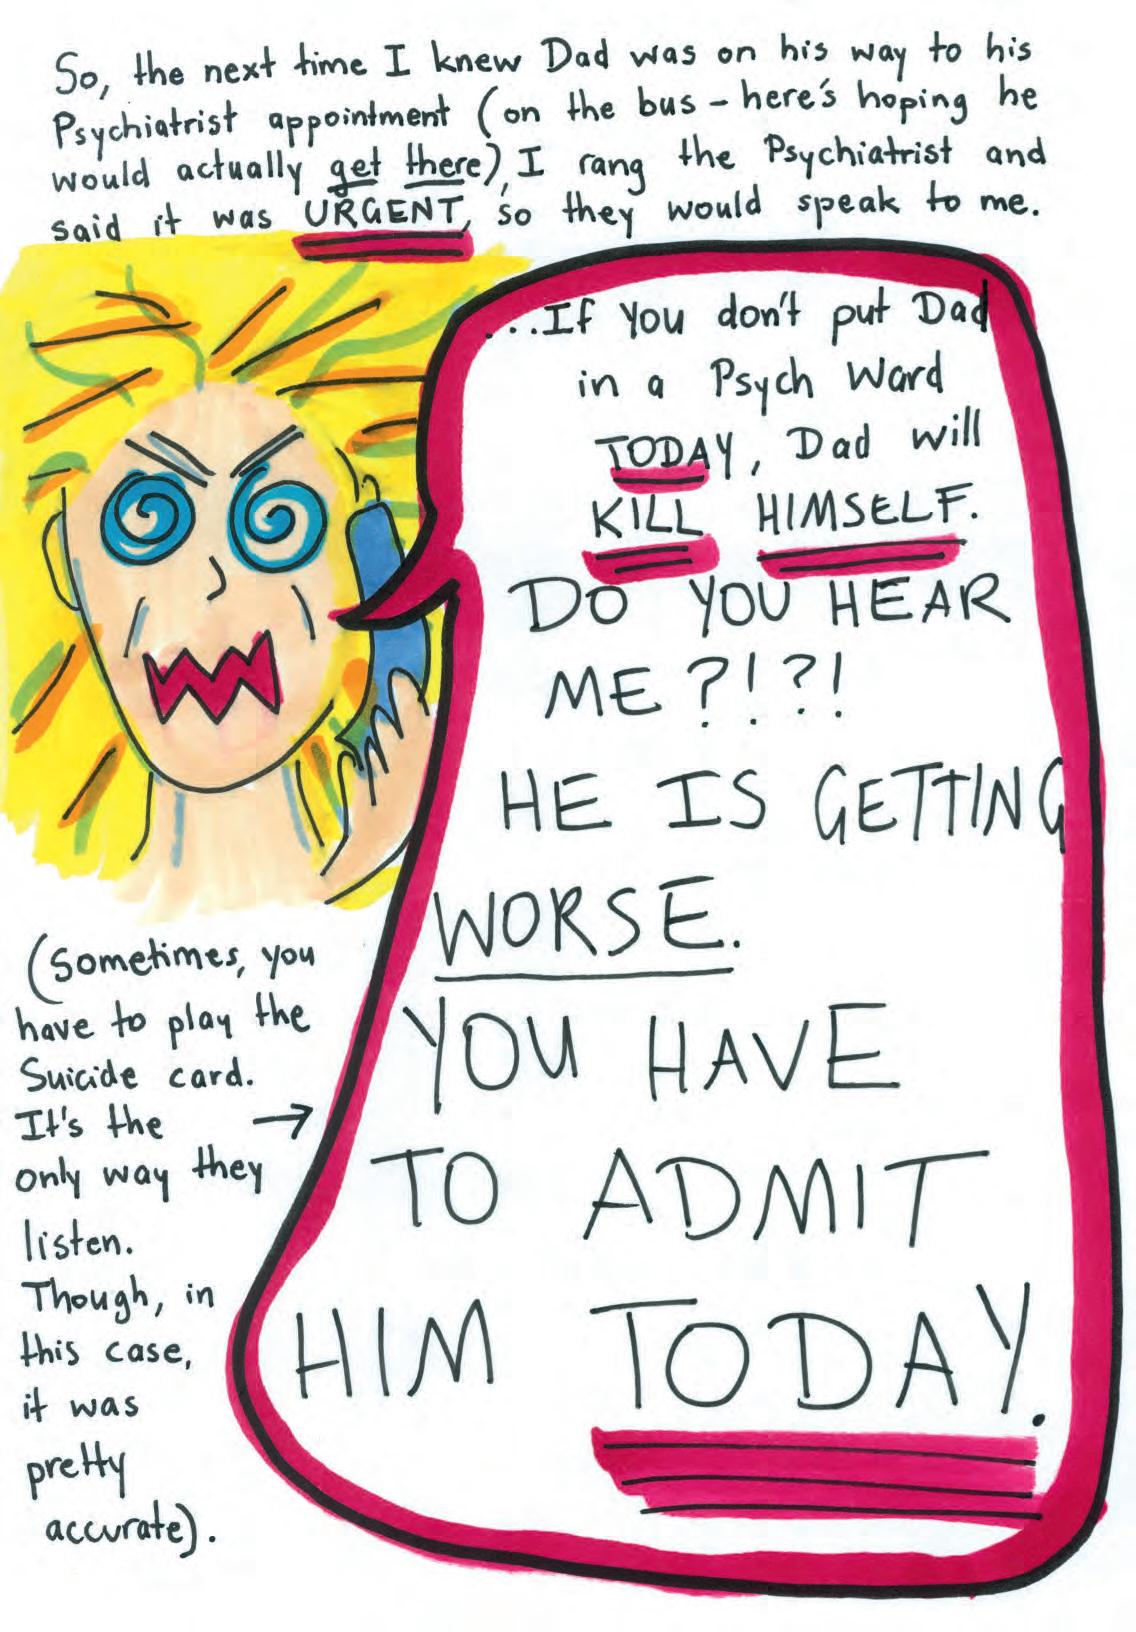 So, the next time I knew Dad was on his way to his
Psychiatrist appointment (on the bus – here's hoping he
would actually get there), I rang the Psychiatrist and
said it was URGENT, so they would speak to me.
...If you don't put Dad
in a Psych Ward
TODAY, Dad will
KILL HIMSELF.
DO YOU HEAR
ME?!?!
HE IS GETTING
WORSE.
YOU HAVE
TO ADMIT
HIM TODAY.
(Sometimes, you
have to play the
Suicide card.
It's the →
only way they
listen.
Though, in
this case,
it was
pretty
accurate).